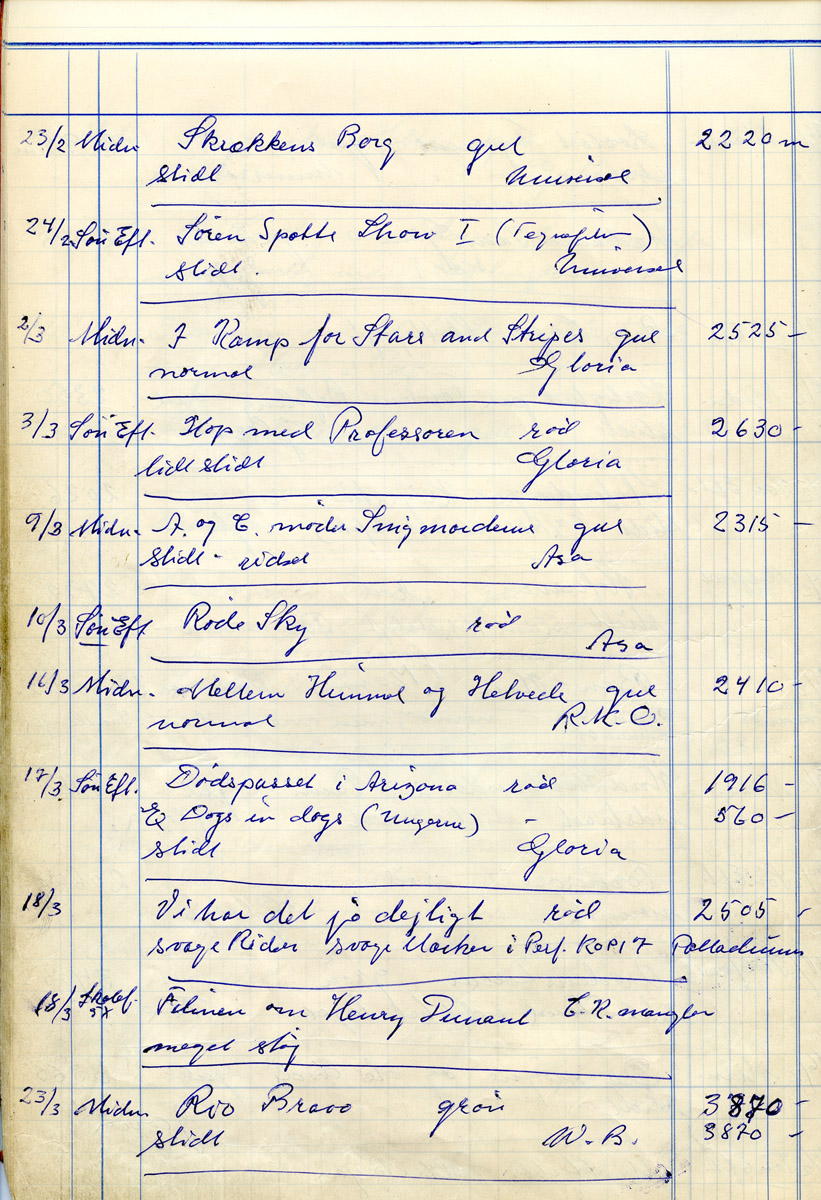 23/2 Midn. Skrækkens Borg gul 2220 m
slidt Universal
24/2 Søn Eft. Søren Spætte Show I (Tegnefilm)
slidt. Universal
2/3 Midn. I Kamp for Stars and Stripes gul 2525 -
normal Gloria
3/3 Søn Eft. Hop med Professoren rød 2630 -
lidt slidt Gloria
9/3 Midn. A. og C. møder Snigmorderne gul 2315 -
slidt - ridset Asa
10/3 Søn Eft. Røde Sky rød
Asa
16/3 Midn. Mellem Himmel og Helvede gul 2410 -
normal R.K.O.
17/3 Søn Eft. Dødspasset i Arizona rød 1916 -
Dogs in dogs (Ungerne) - 560 -
slidt Gloria
18/3 Vi har det jo dejligt rød 2505 -
svage Ridser svage Hakker i Perf. KOPI 7 Palladiums
18/3 Skolef. Filmen om Henry Dunant C.K. mangler
meget støj
23/3 Midn. Rio Bravo grøn 3870 -
slidt W.B. 3870 -